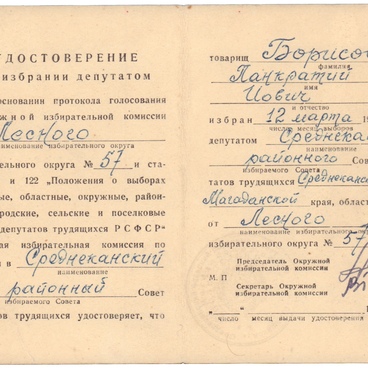 УДОСТОВЕРЕНИЕ
избрании депутатом
основании протокола голосования
жной избирательной комиссии
Лесного
наименование избирательного округа
ельного округа № 57 и ста-
и 122 „Положения о выборах
ые, областные, окружные, район-
ородские, сельские и поселковые
депутатов трудящихся РСФСР“
ая избирательная комиссия по
в Среднеканский
наименование
районный Совет
избираемого Совета
ов трудящихся удостоверяет, что
товарищ Борисов
фамилия
Панкратий
имя
Иович
и отчество
избран 12 марта
число месяц выборов
депутатом Среднекан
наименование
районного Сове
избираемого Совета
татов трудящихся Среднекан
Магаданской края, област
от Лесного
наименование избирательного
избирательного округа № 57
Председатель Окружной
избирательной комиссии
М. П
Секретарь Окружной
избирательной комиссии
„ “
число месяц выдачи удостоверения